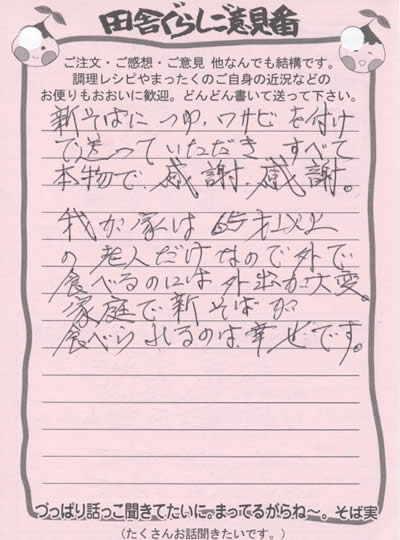 田舎ぐらしご意見番
ご注文・ご感想・ご意見 他なんでも結構です。
調理レシピやまったくのご自身の近況などの
お便りもおおいに歓迎。どんどん書いて送って下さい。
新そばに つゆ、ワサビ を付け
て送っていただき すべて
本物で 感謝、感謝。
我が家は 65才以上
の 老人だけなので外で
食べるのには 外出が大変。
家庭で 新そばが
食べられるのは幸せです。
づっぱり話っこ聞きてたいに。まってるがらね〜。そば実
(たくさんお話聞きたいです。)